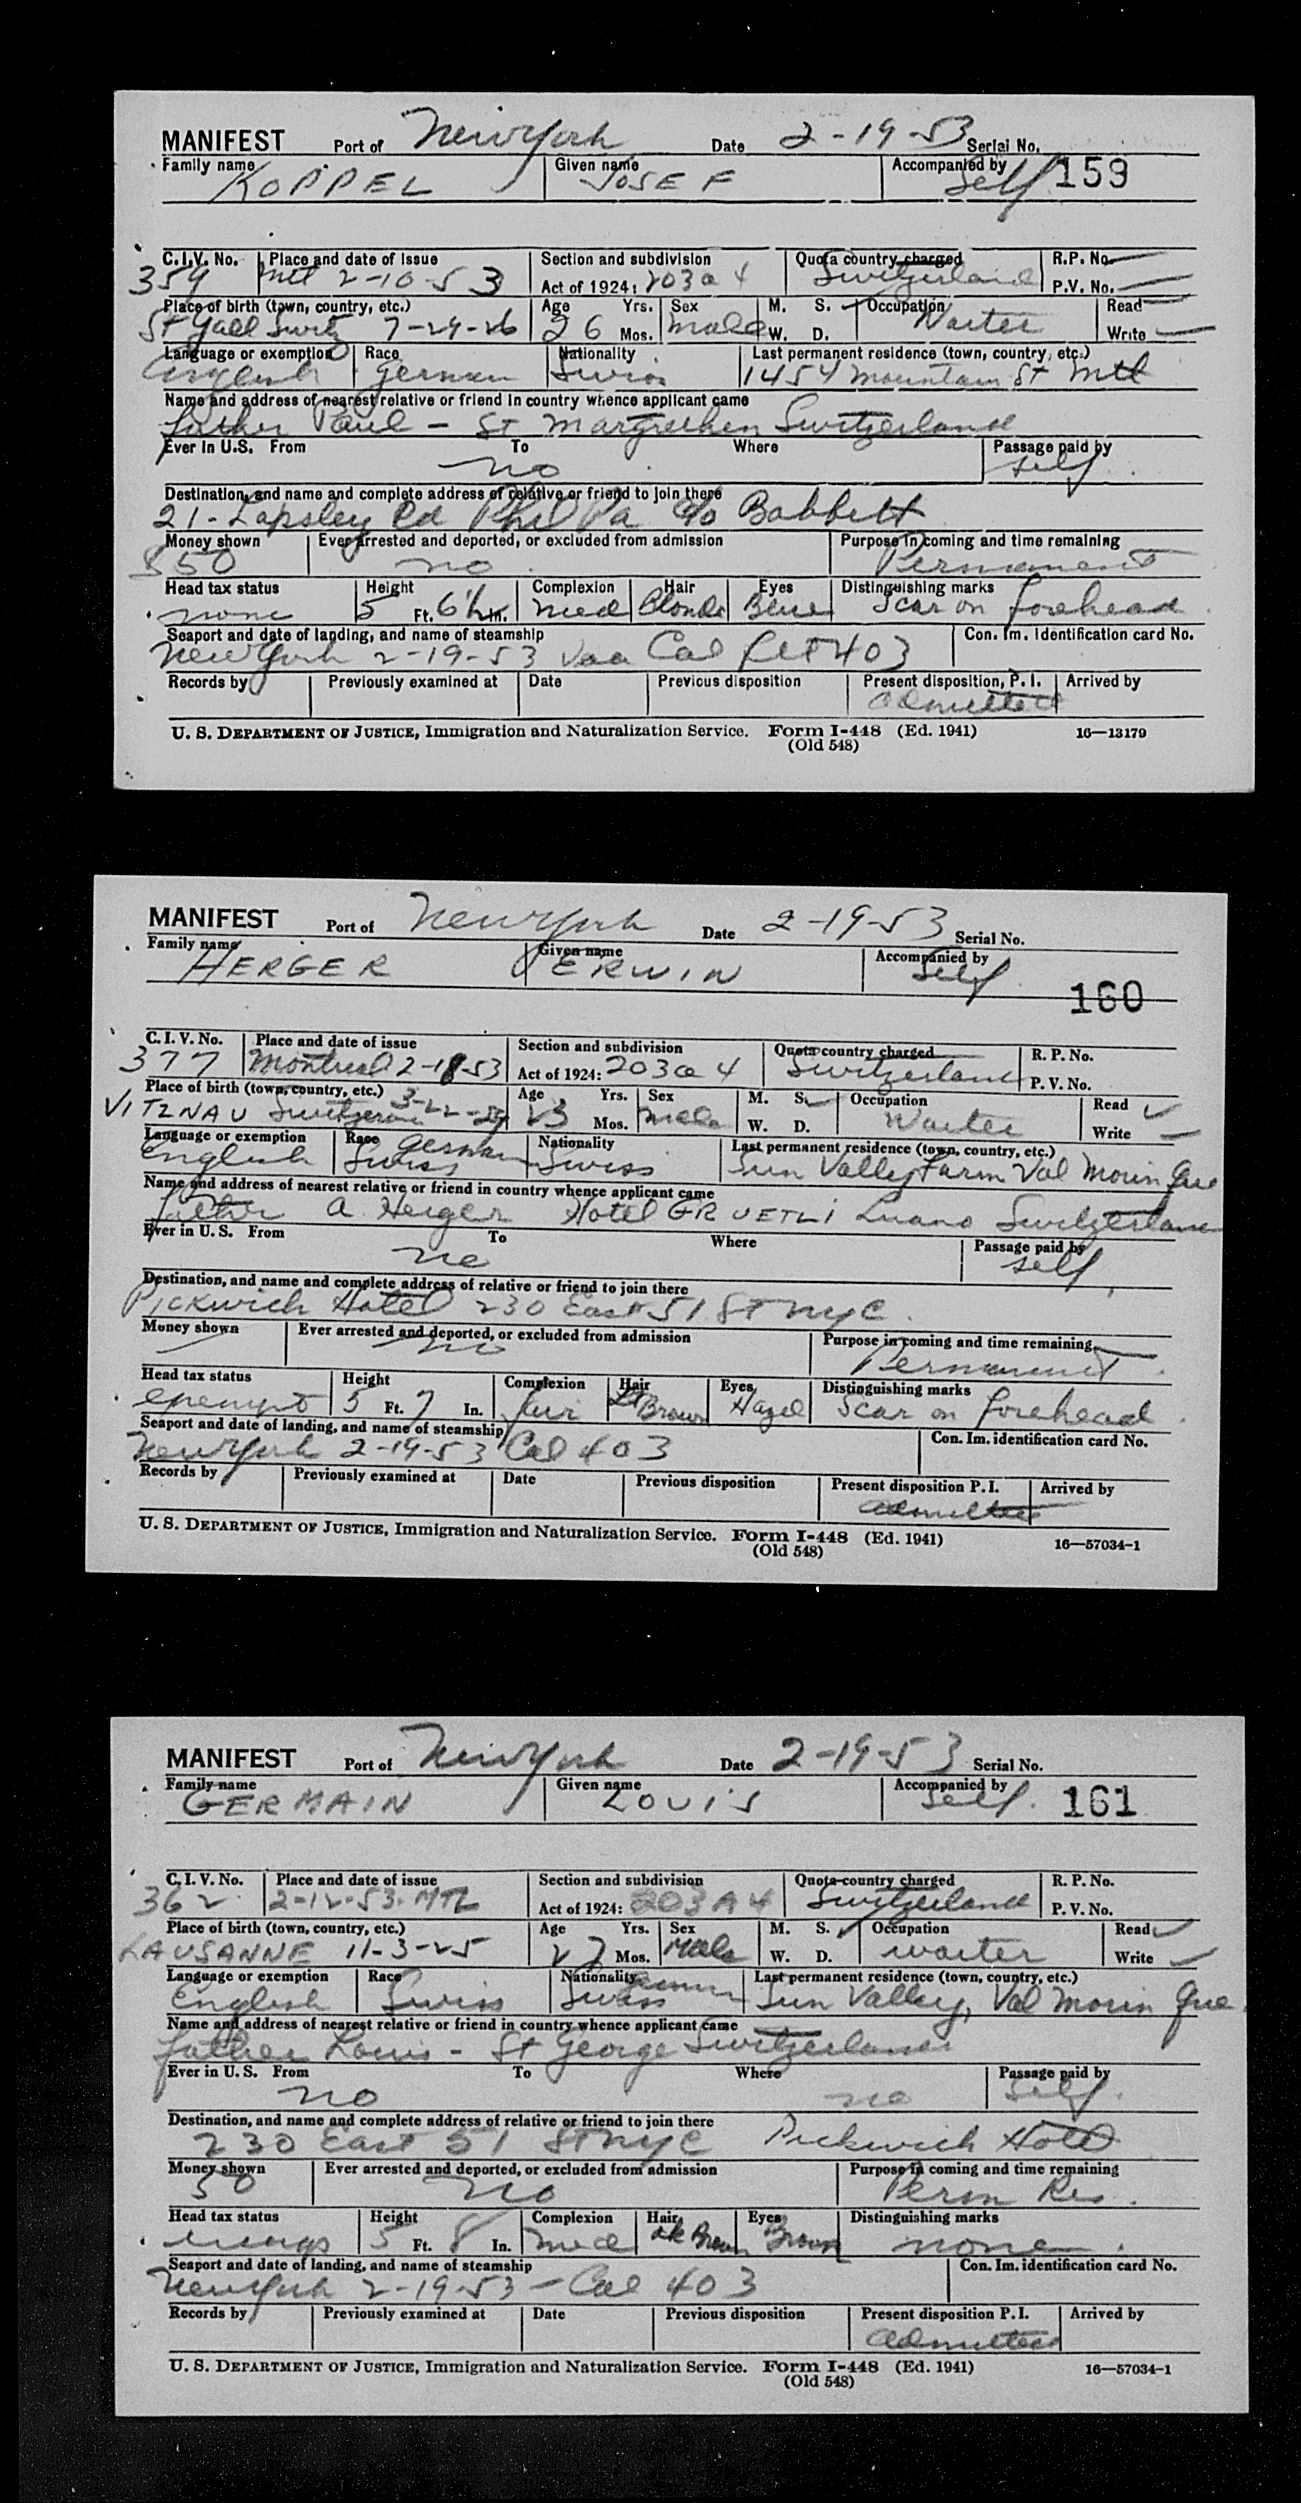 MANIFEST Port of New York Date 2-19-53 Serial No.
Family name KOPPEL Given name JOSEF Accompanied by Self 159
C.I.V. No. Place and date of issue Section and subdivision Quota country charged R.P. No.
359 Mtl 2-10-53 Act of 1924: 203a4 Switzerland P.V. No.
Place of birth (town, country, etc.) Age Yrs. Sex M. S. Occupation Read
St Gall Switz 7-24-26 26 Mos. male W. D. Waiter Write
Language or exemption Race Nationality Last permanent residence (town, country, etc.)
English German Swiss 1454 Mountain St Mtl
Name and address of nearest relative or friend in country whence applicant came
father Paul - St Margrethen Switzerland
Ever in U.S. From To Where Passage paid by
no self
Destination, and name and complete address of relative or friend to join there
21 - Lapsley Rd Phil Pa c/o Babbitt
Money shown Ever arrested and deported, or excluded from admission Purpose in coming and time remaining
$50 no Permanent
Head tax status Height Complexion Hair Eyes Distinguishing marks
none 5 Ft. 6½ In. med Blonde Blue Scar on forehead
Seaport and date of landing, and name of steamship Con. Im. Identification card No.
New York 2-19-53 via Cal flt 403
Records by Previously examined at Date Previous disposition Present disposition, P. I. Arrived by
admitted
U. S. DEPARTMENT OF JUSTICE, Immigration and Naturalization Service. Form I-448 (Ed. 1941) 16—13179
(Old 548)
MANIFEST Port of New York Date 2-19-53 Serial No.
Family name HERGER Given name ERWIN Accompanied by Self
160
C. I. V. No. Place and date of issue Section and subdivision Quota country charged R. P. No.
377 Montreal 2-18-53 Act of 1924: 203a4 Switzerland P. V. No.
Place of birth (town, country, etc.) Age Yrs. Sex M. S. Occupation Read
VITZNAU Switzerland 3-22-29 23 Mos. Male W. D. Waiter Write
Language or exemption Race German Nationality Last permanent residence (town, country, etc.)
English Swiss Swiss Sun Valley Farm Val Morin Que
Name and address of nearest relative or friend in country whence applicant came
father A. Herger Hotel GRUETLI Switzerland
Ever in U. S. From To Where Passage paid by
no self
Destination, and name and complete address of relative or friend to join there
Pickwick Hotel 230 East 51 St NYC
Money shown Ever arrested and deported, or excluded from admission Purpose in coming and time remaining
no Permanent
Head tax status Height Complexion Hair Eyes Distinguishing marks
exempt 5 Ft. 7 In. fair Lt Brown Hazel Scar on forehead
Seaport and date of landing, and name of steamship Con. Im. identification card No.
New York 2-19-53 Cal 403
Records by Previously examined at Date Previous disposition Present disposition P. I. Arrived by
admitted
U. S. DEPARTMENT OF JUSTICE, Immigration and Naturalization Service. Form I-448 (Ed. 1941) 16—57034-1
(Old 548)
MANIFEST Port of New York Date 2-19-53 Serial No.
Family name GERMAIN Given name LOUIS Accompanied by Self 161
C. I. V. No. Place and date of issue Section and subdivision Quota country charged R. P. No.
362 2-12-53 MTL Act of 1924: 203A4 Switzerland P. V. No.
Place of birth (town, country, etc.) Age Yrs. Sex M. S. Occupation Read
LAUSANNE 11-3-25 27 Mos. Male W. D. waiter Write
Language or exemption Race Nationality Last permanent residence (town, country, etc.)
English Swiss Swiss Sun Valley, Val Morin Que.
Name and address of nearest relative or friend in country whence applicant came
father Louis - St George Switzerland
Ever in U. S. From To Where Passage paid by
no no self
Destination, and name and complete address of relative or friend to join there
230 East 51 St NYC Pickwick Hotel
Money shown Ever arrested and deported, or excluded from admission Purpose in coming and time remaining
50 no Perm Res.
Head tax status Height Complexion Hair Eyes Distinguishing marks
5 Ft. 8 In. med dk Brown Brown none
Seaport and date of landing, and name of steamship Con. Im. identification card No.
New York 2-19-53 - Cal 403
Records by Previously examined at Date Previous disposition Present disposition P. I. Arrived by
admitted
U. S. DEPARTMENT OF JUSTICE, Immigration and Naturalization Service. Form I-448 (Ed. 1941) 16—57034-1
(Old 548)